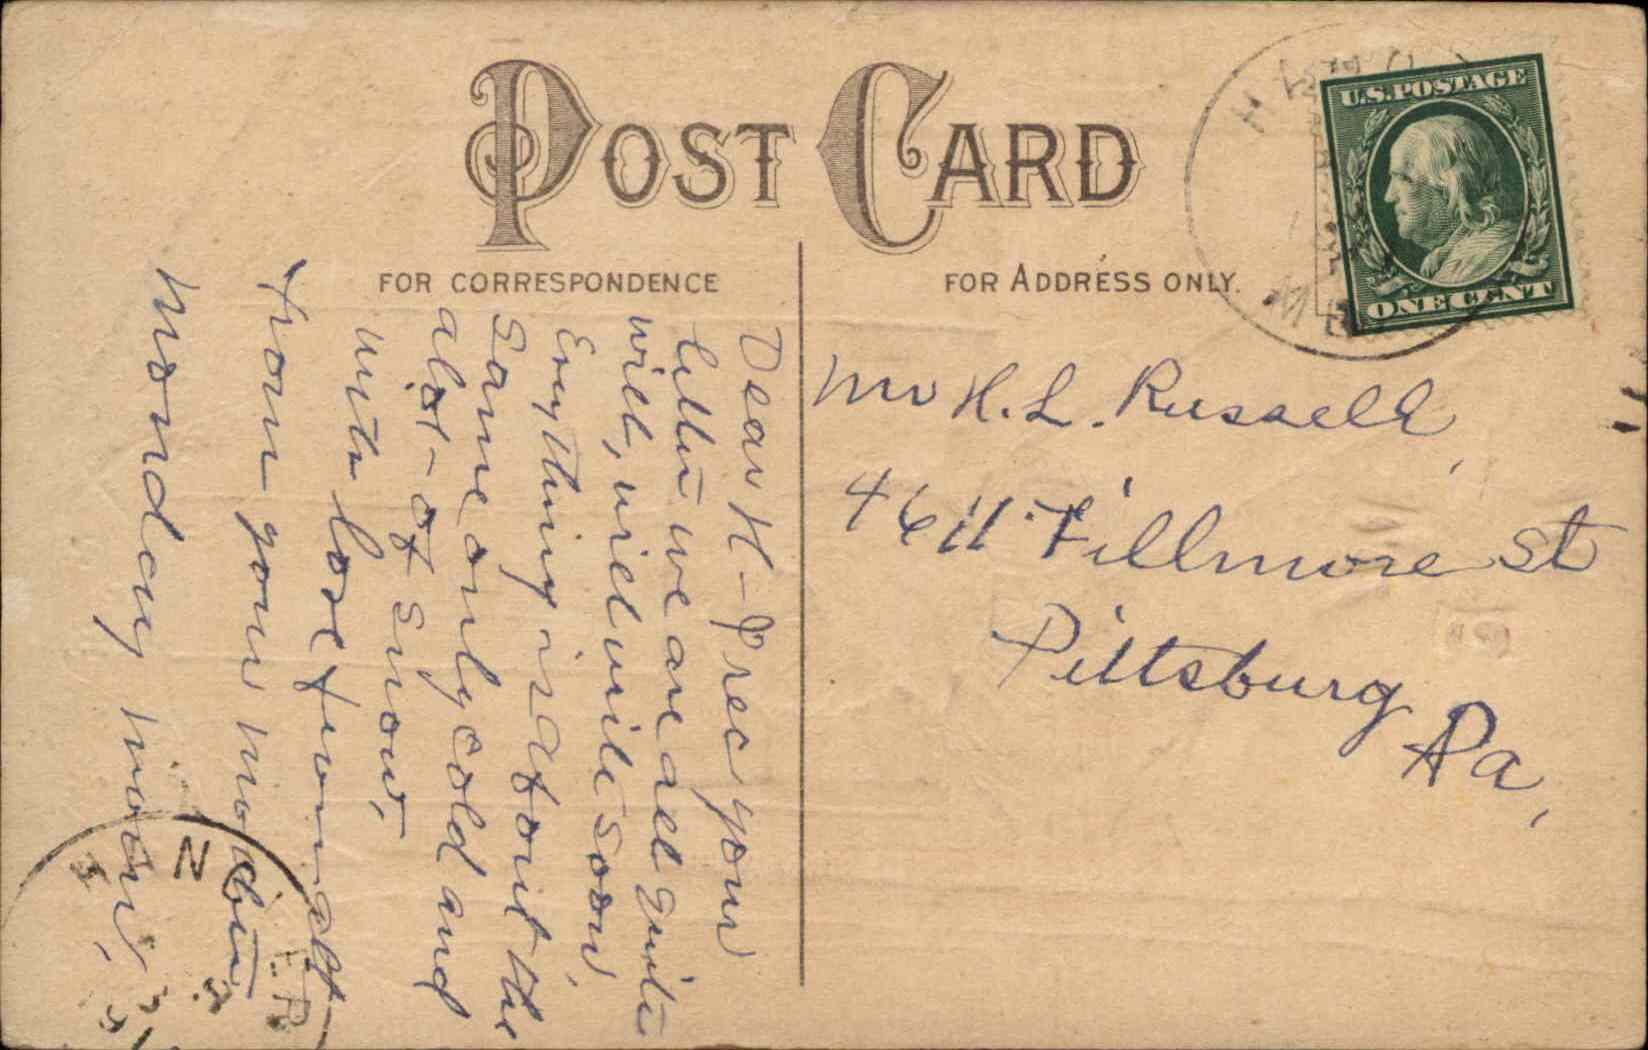 POST CARD
FOR CORRESPONDENCE
FOR ADDRESS ONLY.
U.S. POSTAGE
ONE CENT
Dear H - I rec your
letter we are all quite
well, will write soon,
Everything is about the
same only cold and
a lot - of snow,
with love from all
from your mother
Monday morn,
Mr H. L. Russell,
4611 Fillmore St
Pittsburg
Pa,